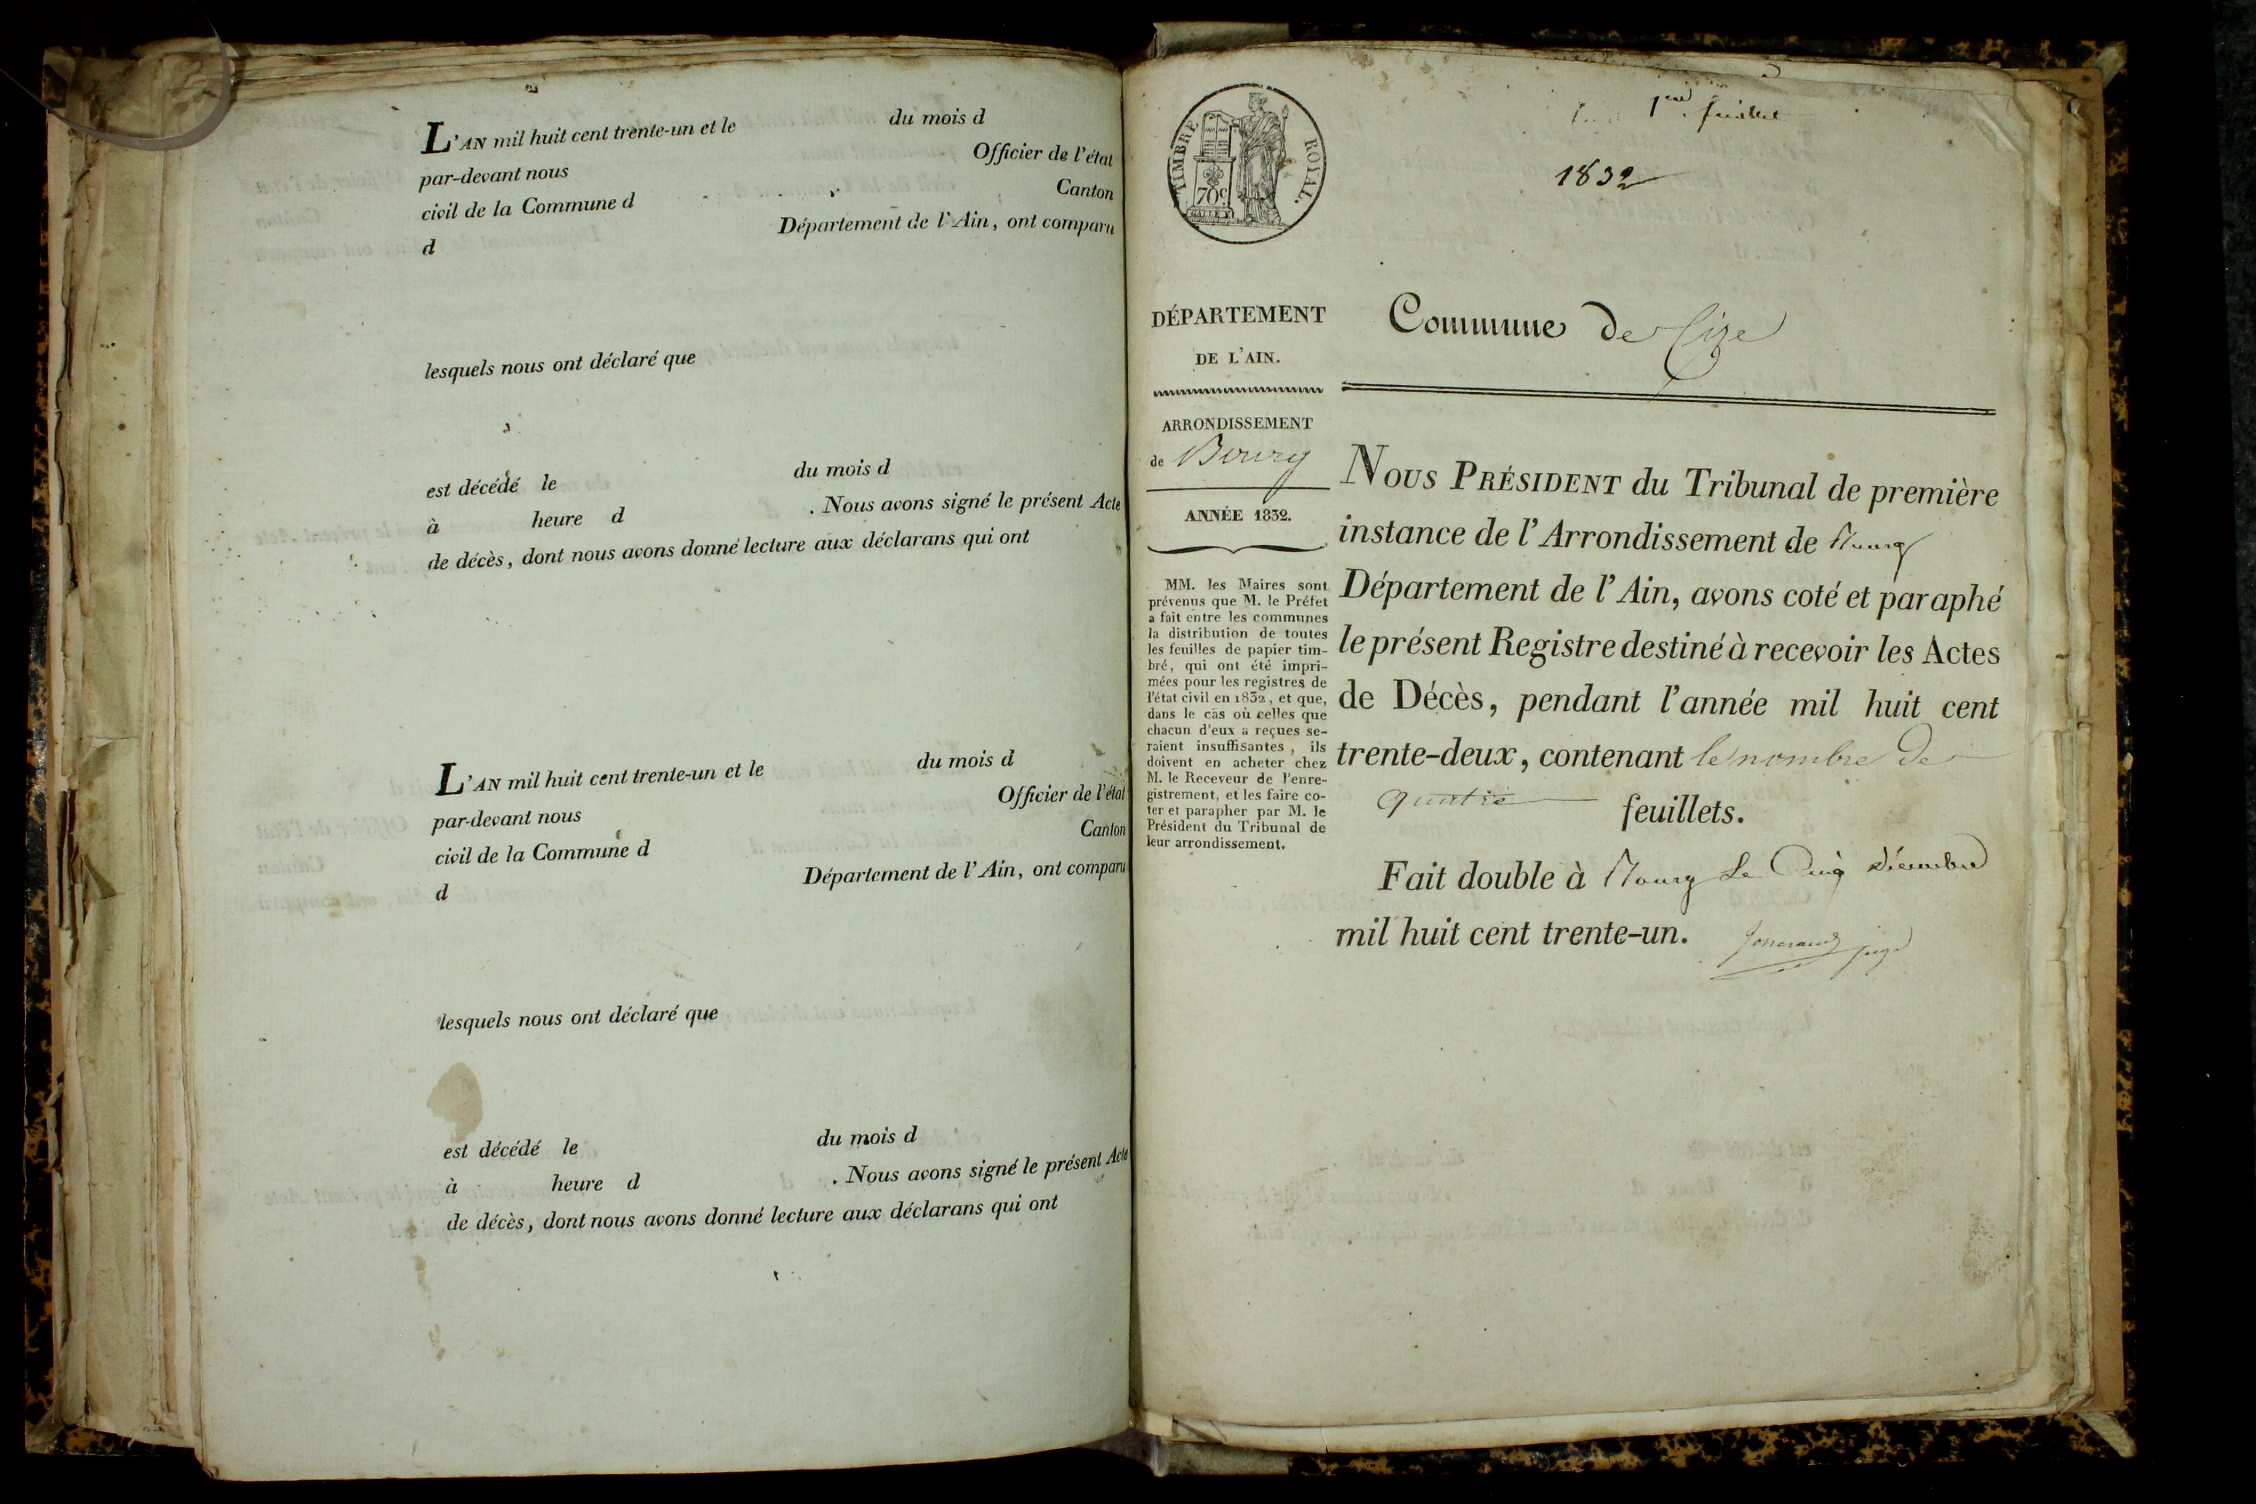 L'AN mil huit cent trente-un et le du mois d
par-devant nous Officier de l'état
civil de la Commune d Canton
d Département de l'Ain, ont comparu
lesquels nous ont déclaré que
est décédé le du mois d
à heure d . Nous avons signé le présent Acte
de décès, dont nous avons donné lecture aux déclarans qui ont
L'AN mil huit cent trente-un et le du mois d
par-devant nous Officier de l'état
civil de la Commune d Canton
d Département de l'Ain, ont comparu
lesquels nous ont déclaré que
est décédé le du mois d
à heure d . Nous avons signé le présent Acte
de décès, dont nous avons donné lecture aux déclarans qui ont
TIMBRE ROYAL.
70c.
1832
DÉPARTEMENT
DE L'AIN.
ARRONDISSEMENT
de Bourg
ANNÉE 1832.
MM. les Maires sont
prévenus que M. le Préfet
a fait entre les communes
la distribution de toutes
les feuilles de papier tim-
bré, qui ont été impri-
mées pour les registres de
l'état civil en 1832, et que,
dans le cas où celles que
chacun d'eux a reçues se-
raient insuffisantes, ils
doivent en acheter chez
M. le Receveur de l'enre-
gistrement, et les faire co-
ter et parapher par M. le
Président du Tribunal de
leur arrondissement.
Commune de Cize
NOUS PRÉSIDENT du Tribunal de première
instance de l'Arrondissement de Bourg
Département de l'Ain, avons coté et paraphé
le présent Registre destiné à recevoir les Actes
de Décès, pendant l'année mil huit cent
trente-deux, contenant le nombre de
quatre feuillets.
Fait double à Bourg Le Cinq décembre
mil huit cent trente-un.
juge